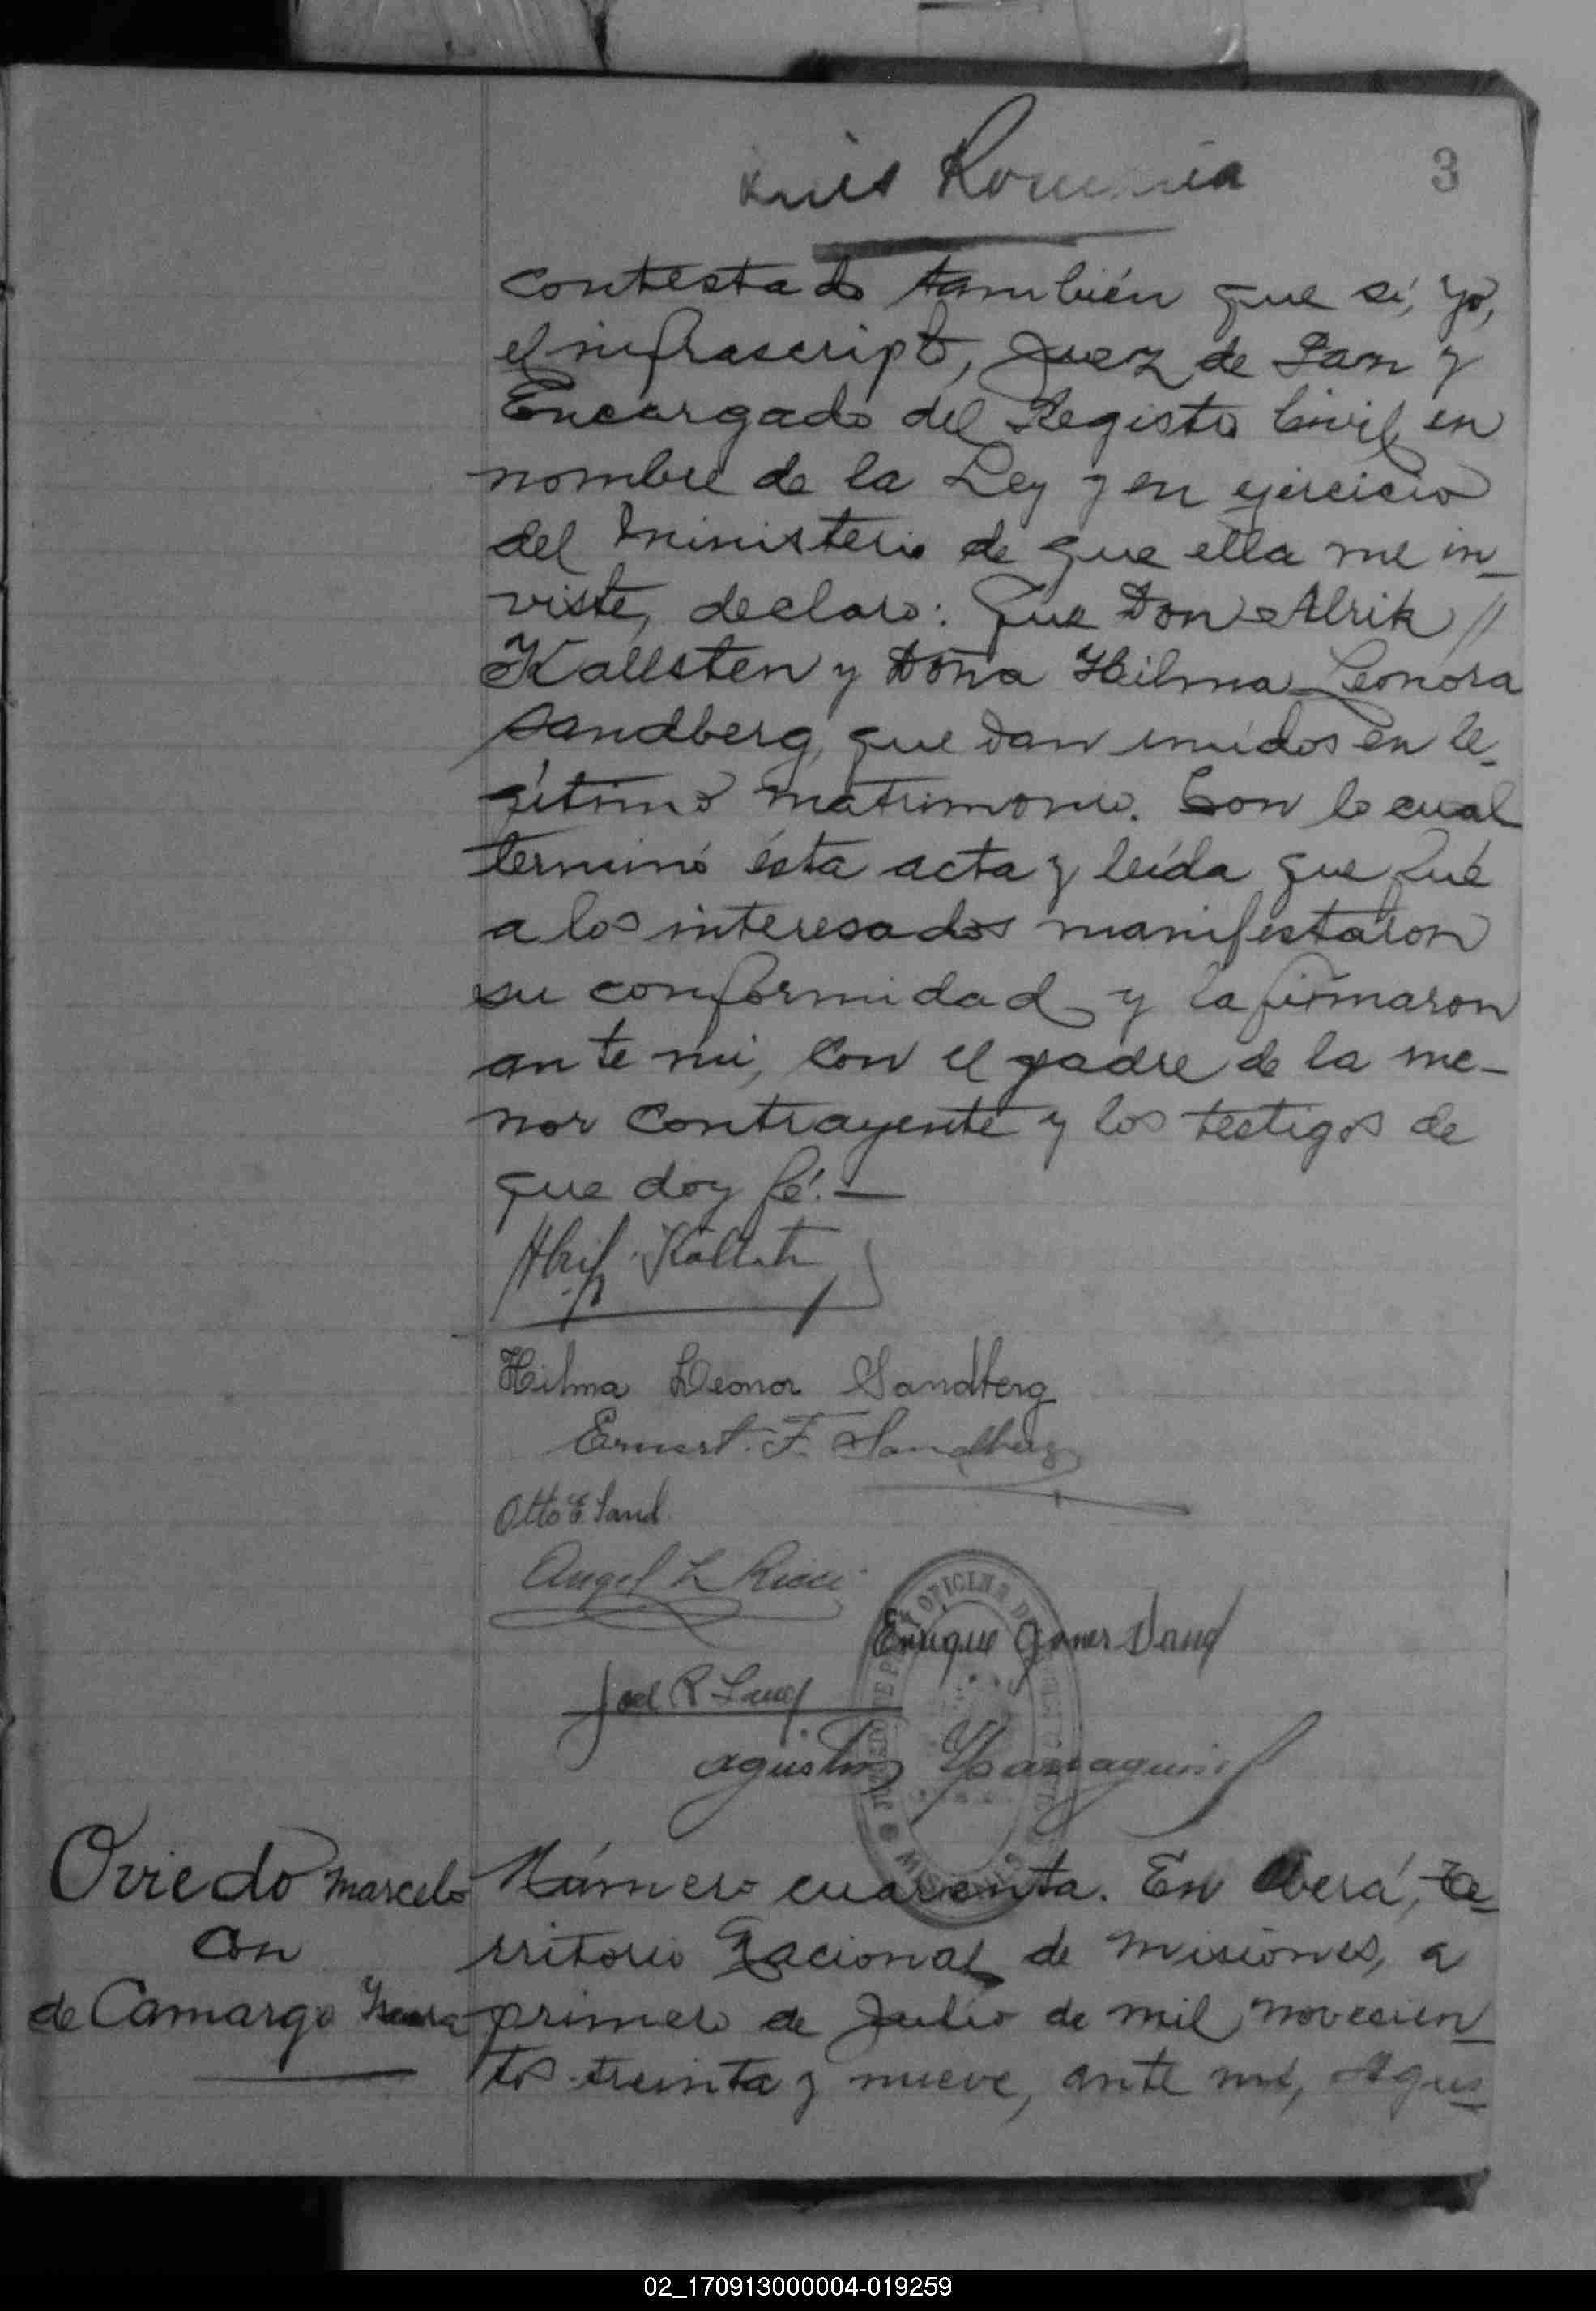 Luis
3
contestado también que sí, Yo,
el infrascripto, Juez de Paz y
Encargado del Registo Civil en
nombre de la Ley y en ejercicio
del Ministerio de que ella me in-
viste, declaro: Que Don Alrik //
Kallsten y Doña Hilma Leonora
Sandberg, quedan unidos en le-
gítimo matrimonio. Con lo cual
terminó ésta acta y leída que fué
a los interesados manifestaron
su conformidad y la firmaron
ante mi, con el padre de la me-
nor contrayente y los testigos de
que doy fé.—
Hilma Leonor Sandberg
Ernest. F. Sandberg
Otto E. Sand
Angel L Ricci
Enrique
Joel R
Agustin
OFICINA
Oviedo Marcelo
con
de Camargo
Número cuarenta. En Oberá, te-
rritorio Nacional de Misiones, a
primero de Julio de mil novecien-
tos treinta y nueve, ante mi, Agus-
02_170913000004-019259